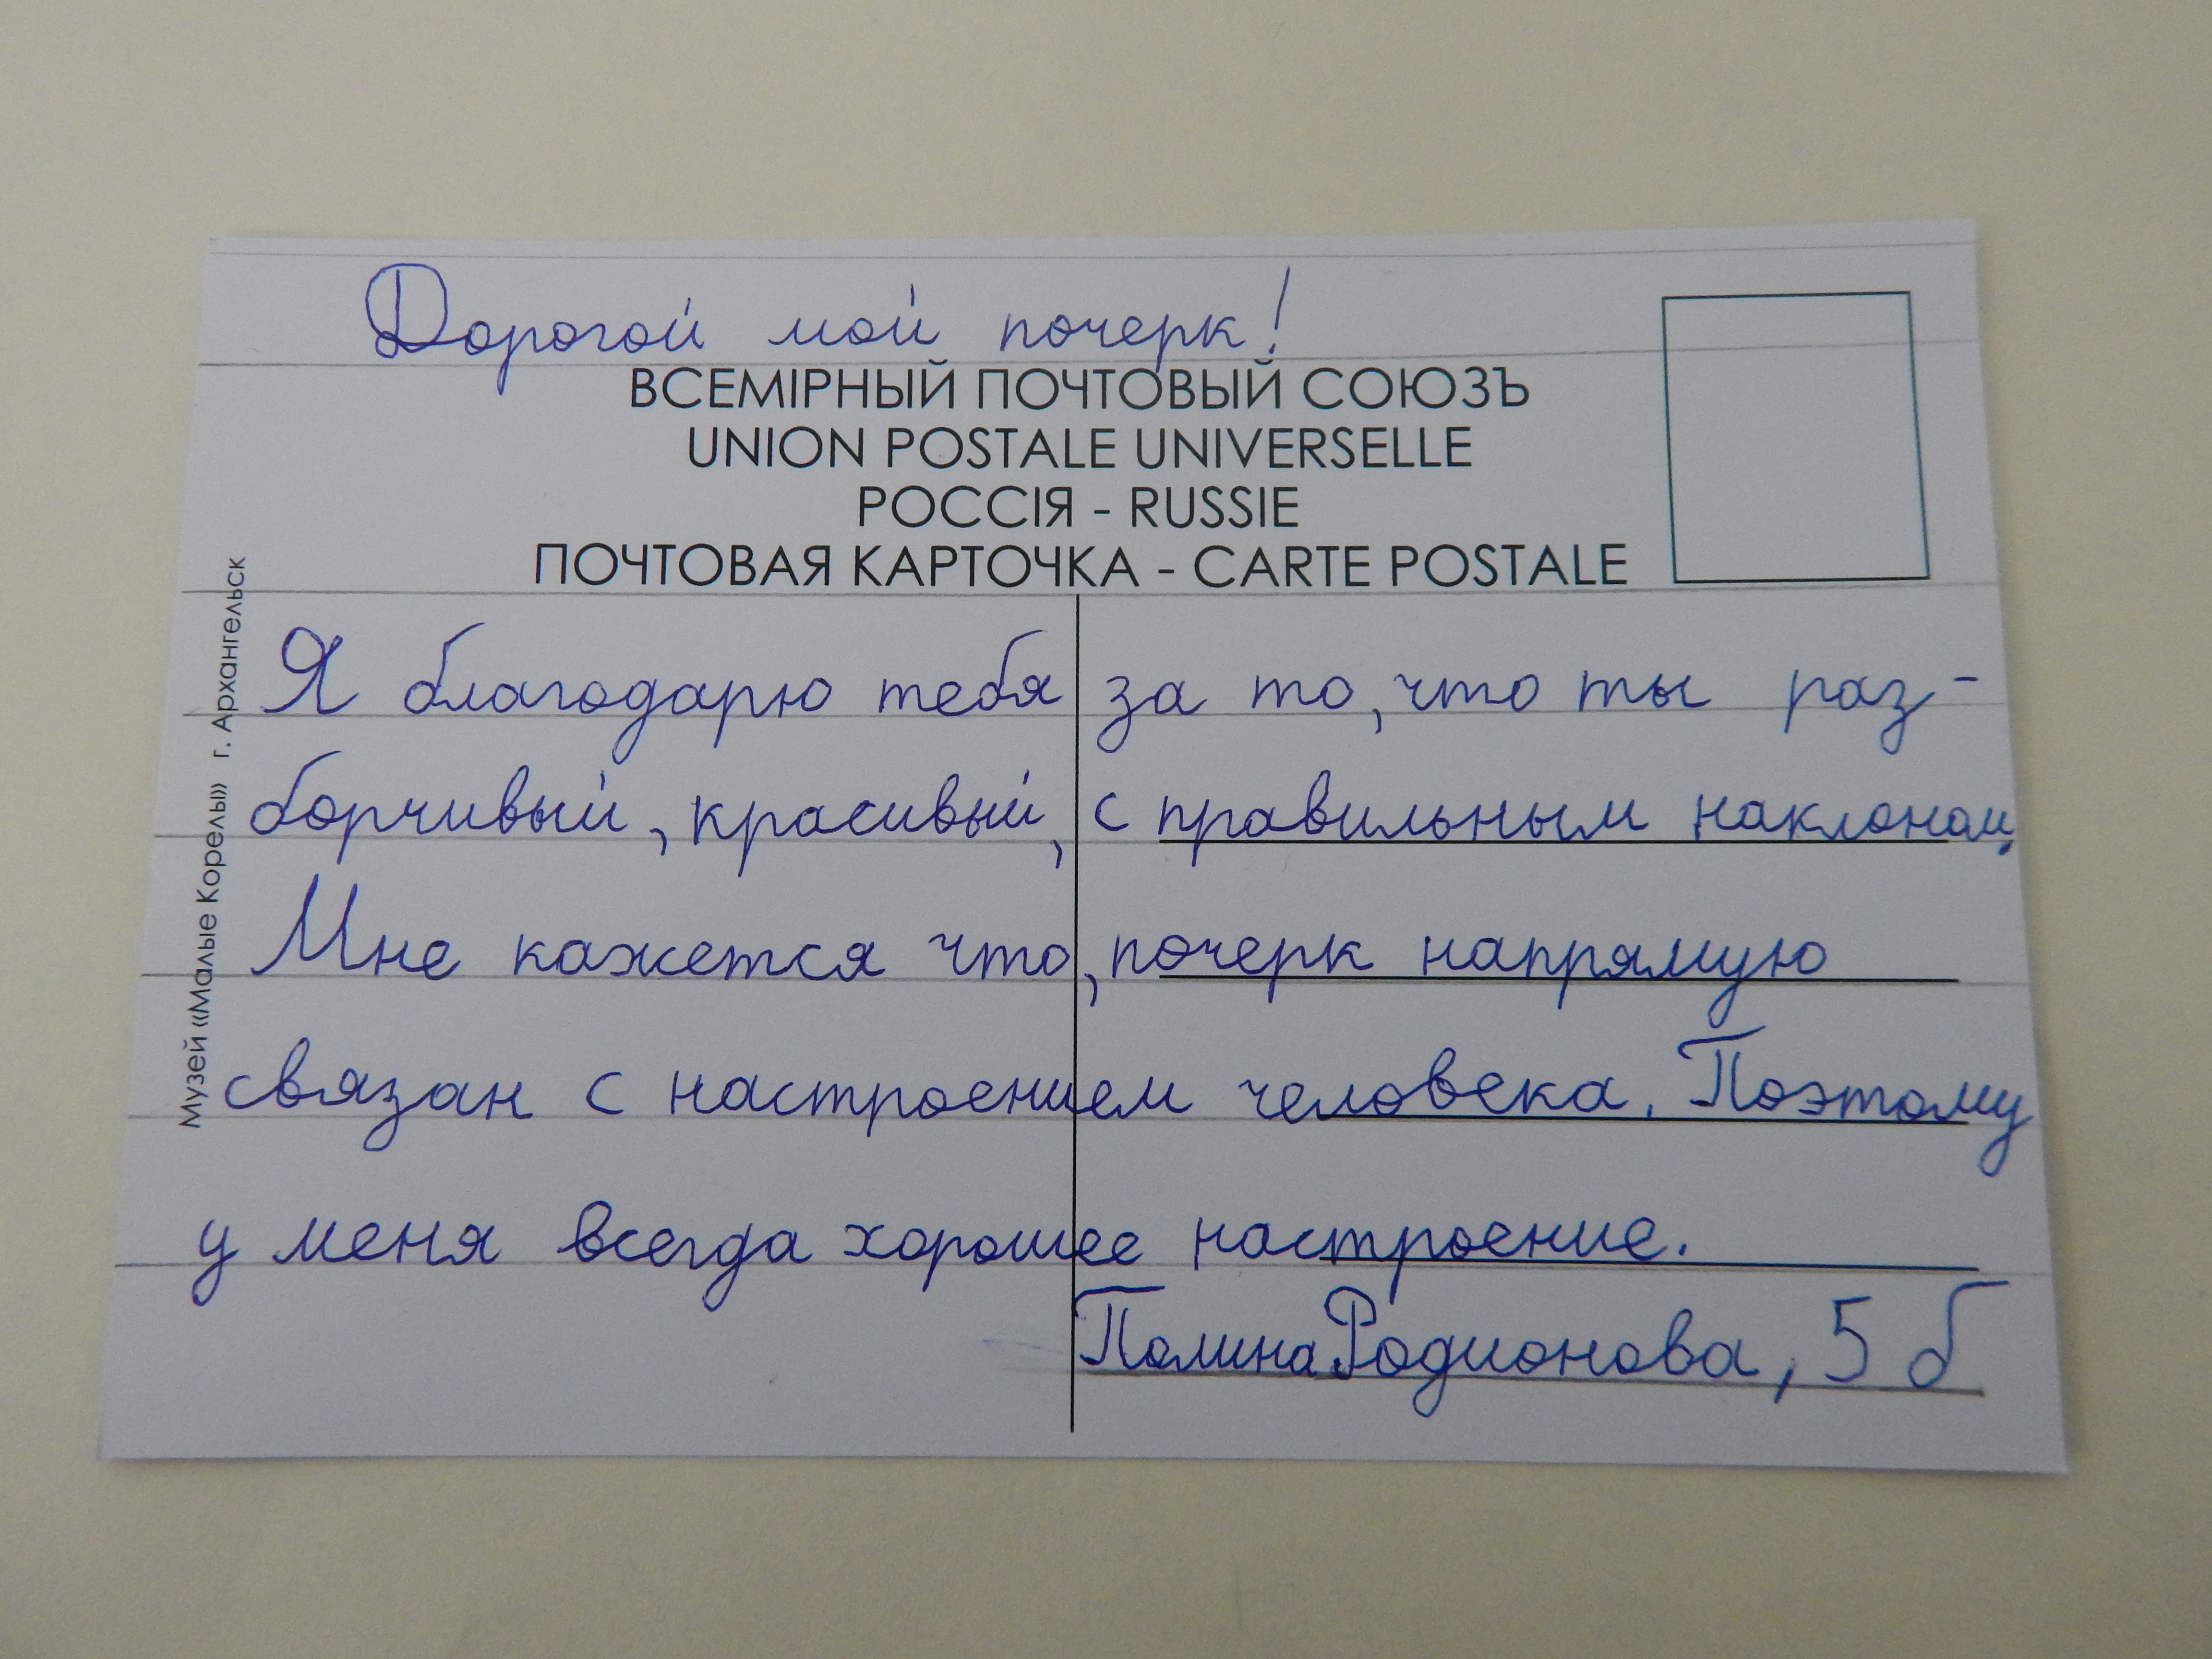 Дорогой мой почерк!
ВСЕМІРНЫЙ ПОЧТОВЫЙ СОЮЗЪ
UNION POSTALE UNIVERSELLE
РОССІЯ - RUSSIE
ПОЧТОВАЯ КАРТОЧКА - CARTE POSTALE
Музей «Малые Корелы» г. Архангельск
Я благодарю тебя за то, что ты раз-
борчивый, красивый, с правильным наклоном.
Мне кажется что, почерк напрямую
связан с настроением человека. Поэтому
у меня всегда хорошее настроение.
Полина Родионова, 5 б